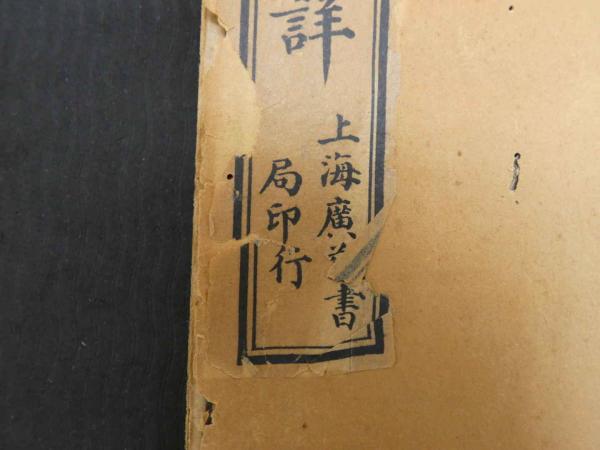 詳
上海廣書
局印行